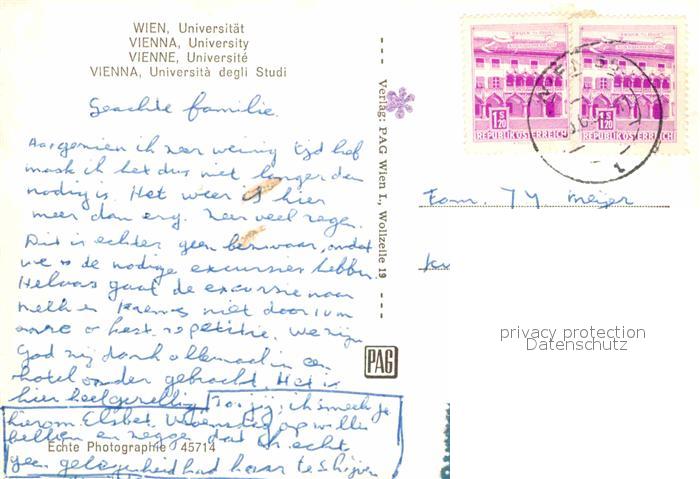 WIEN, Universität
VIENNA, University
VIENNE, Université
VIENNA, Università degli Studi
Geachte familie.
Aangezien ik zeer weinig tijd heb
maak ik het dus niet langer dan
nodig is. Het weer is hier
meer dan erg. Zeer veel regen.
Dit is echter geen bezwaar, omdat
we de nodige excursies hebben.
Helaas gaat de excursie naar
niet door i.v.m.
repetitie. We zijn
God zij dank allemaal in een
hotel onder gebracht. Het is
hier heel gezellig. Jo, jij, ik smeek je
hierom Elsbet op wille
bellen en zeggen dat ik echt
geen gelegenheid had haar te schrijven
Echte Photographie 45714
Verlag: PAG Wien I., Wollzeile 19
PAG
1 S 20
REPUBLIK ÖSTERREICH
1 S 20
REPUBLIK ÖSTERREICH
Fam. Meijer
privacy protection
Datenschutz